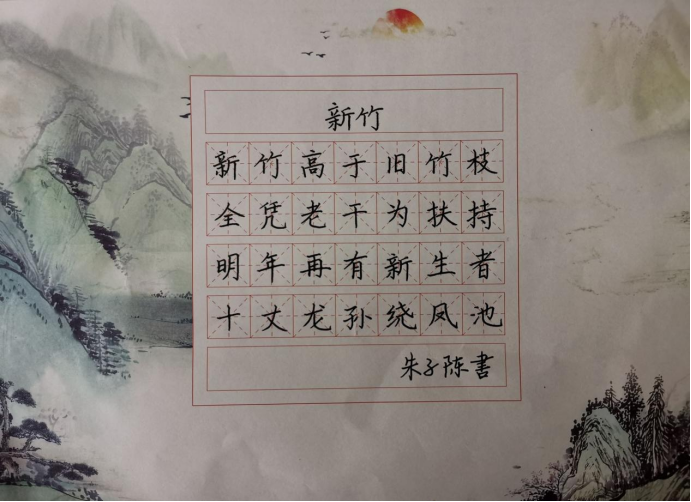 新竹
新竹高于旧竹枝
全凭老干为扶持
明年再有新生者
十丈龙孙绕凤池
朱子陈書